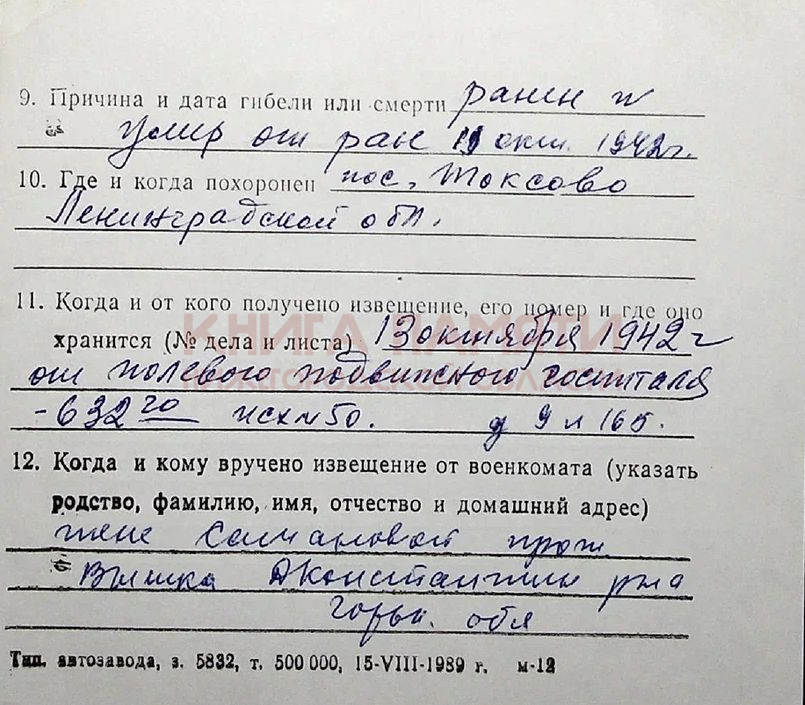 9. Причина и дата гибели или смерти ранен и
умер от ран 19 окт. 1942г.
10. Где и когда похоронен пос. Токсово
Ленинградской обл.
11. Когда и от кого получено извещение, его номер и где оно
КНИГА ПАМЯТИ
хранится (№ дела и листа) 13 октября 1942г
НИЖЕГОРОДСКОЙ ОБЛАСТИ
от полевого подвижного госпиталя
-632го исх №50. д 9 л 165.
12. Когда и кому вручено извещение от военкомата (указать
родство, фамилию, имя, отчество и домашний адрес)
жене прож
Горьк. обл
Тип. автозавода, з. 5832, т. 500 000, 15-VIII-1989 г. м-12